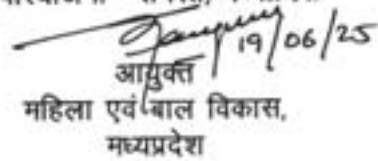 19/06/25
आयुक्त
महिला एवं बाल विकास,
मध्यप्रदेश